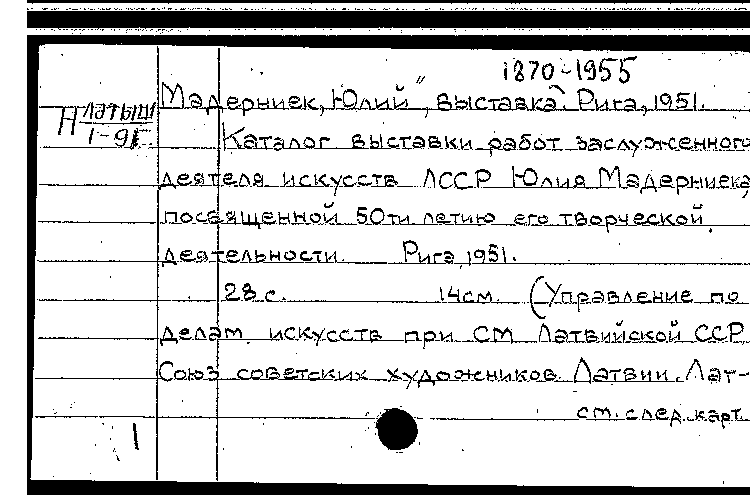 1870-1955
Мадерниек, Юлий", выставка. Рига, 1951.
Н латыш
1-91
Каталог выставки работ заслуженного
деятеля искусств ЛССР Юлия Мадерниека,
посвященной 50ти летию его творческой
деятельности. Рига, 1951.
28 с. 14см. (Управление по
делам искусств при СМ Латвийской ССР
Союз советских художников Латвии. Лат-
см. след. карт.
1